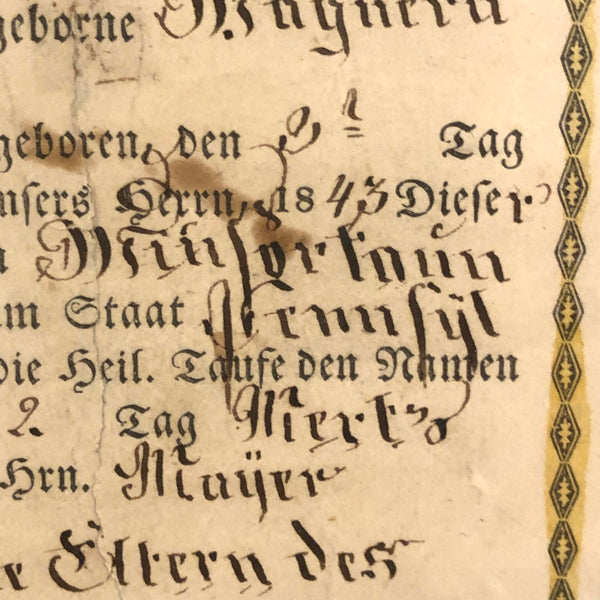 geborne Wagnern
geboren, den 3ᵗ Tag
unsers Herrn, 1843 Dieser
Taun
im Staat Pennsÿl
die Heil. Taufe den Namen
2. Tag Mertz
Hrn. Maÿer
Eltern des